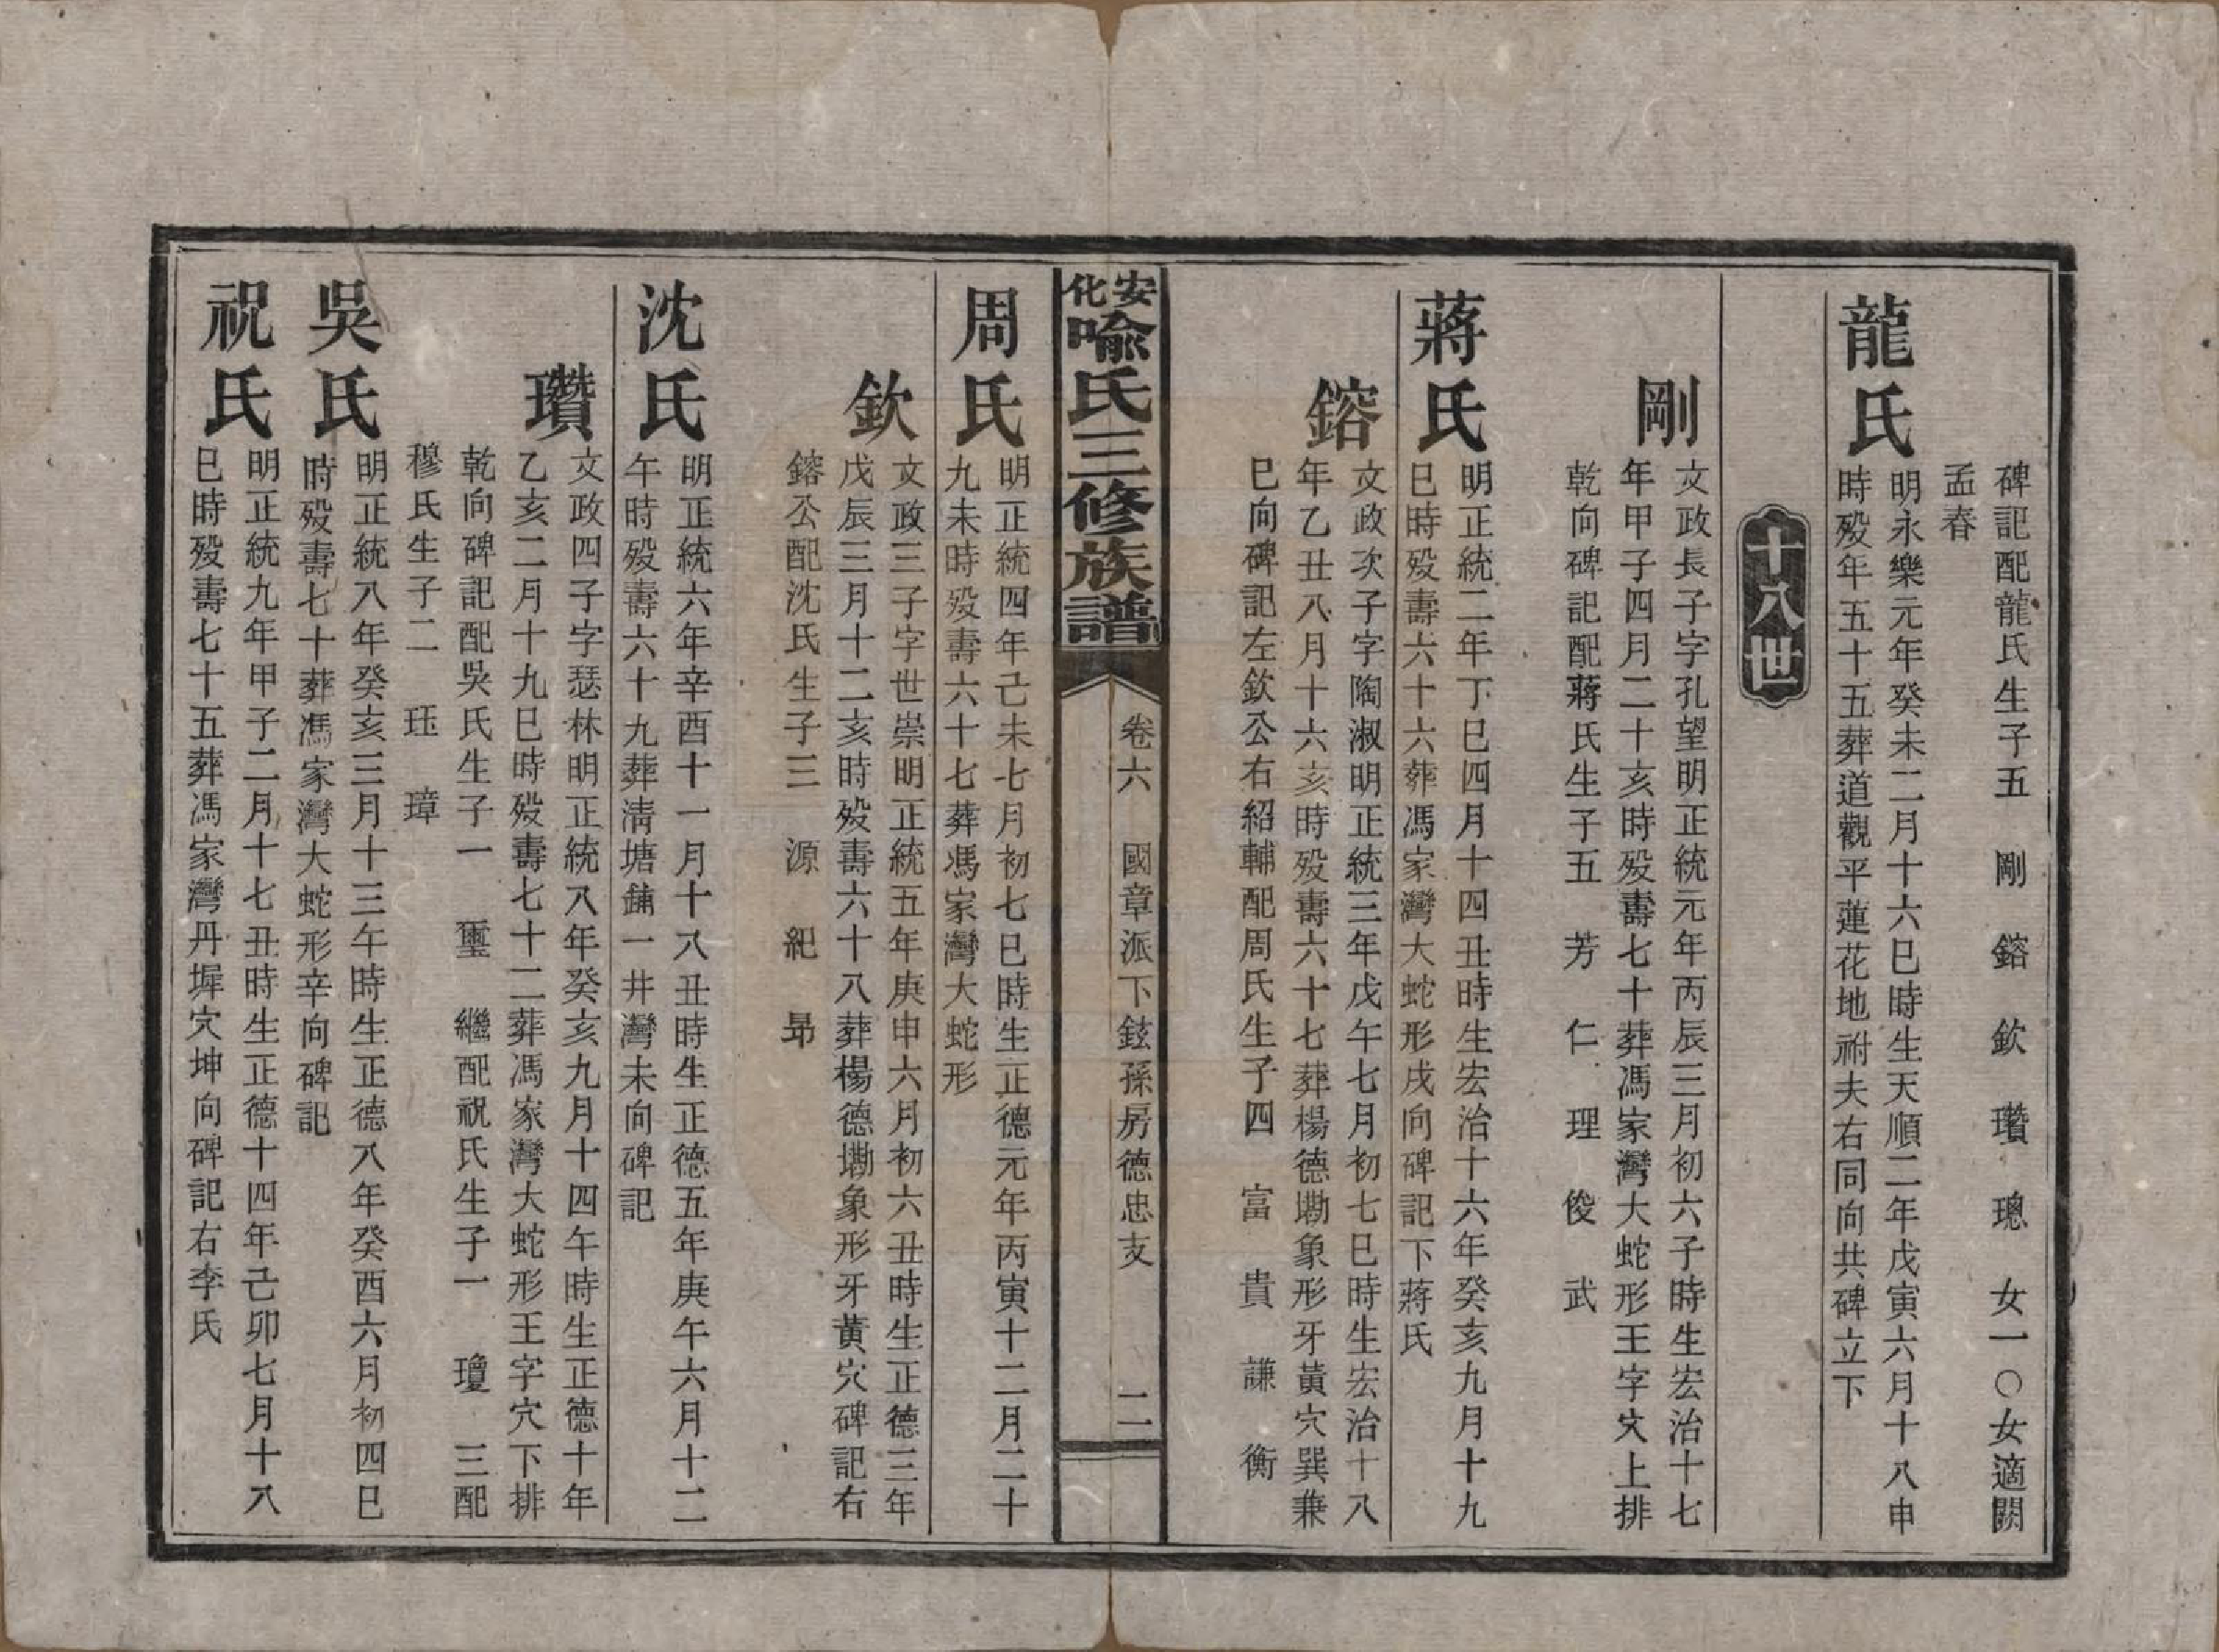 碑記配龍氏生子五 剛 鎔 欽 瓚 璁 女一〇女適闕
孟春
龍氏
明永樂元年癸未二月十六巳時生天順二年戊寅六月十八申
時殁年五十五葬道觀平蓮花地祔夫右同向共碑立下
十八世
剛
文政長子字孔望明正統元年丙辰三月初六子時生宏治十七
年甲子四月二十亥時殁壽七十葬馮家灣大蛇形王字穴上排
乾向碑記配蔣氏生子五 芳 仁 理 俊 武
蔣氏
明正統二年丁巳四月十四丑時生宏治十六年癸亥九月十九
巳時殁壽六十六葬馮家灣大蛇形戌向碑記下蔣氏
鎔
文政次子字陶淑明正統三年戊午七月初七巳時生宏治十八
年乙丑八月十六亥時殁壽六十七葬楊德墈象形牙黃穴巽兼
巳向碑記左欽公右紹輔配周氏生子四 富 貴 謙 衡
安化喻氏三修族譜
卷六 國章派下鉉孫房德忠支 二
周氏
明正統四年己未七月初七巳時生正德元年丙寅十二月二十
九未時殁壽六十七葬馮家灣大蛇形
欽
文政三子字世崇明正統五年庚申六月初六丑時生正德三年
戊辰三月十二亥時殁壽六十八葬楊德墈象形牙黃穴碑記右
鎔公配沈氏生子三 源 紀 昴
沈氏
明正統六年辛酉十一月十八丑時生正德五年庚午六月十二
午時殁壽六十九葬清塘鋪一井灣未向碑記
瓚
文政四子字瑟林明正統八年癸亥九月十四午時生正德十年
乙亥二月十九巳時殁壽七十二葬馮家灣大蛇形王字穴下排
乾向碑記配吳氏生子一 璽 繼配祝氏生子一 瓊 三配
穆氏生子二 珏 璋
吳氏
明正統八年癸亥三月十三午時生正德八年癸酉六月初四巳
時殁壽七十葬馮家灣大蛇形辛向碑記
祝氏
明正統九年甲子二月十七丑時生正德十四年己卯七月十八
巳時殁壽七十五葬馮家灣丹墀穴坤向碑記右李氏